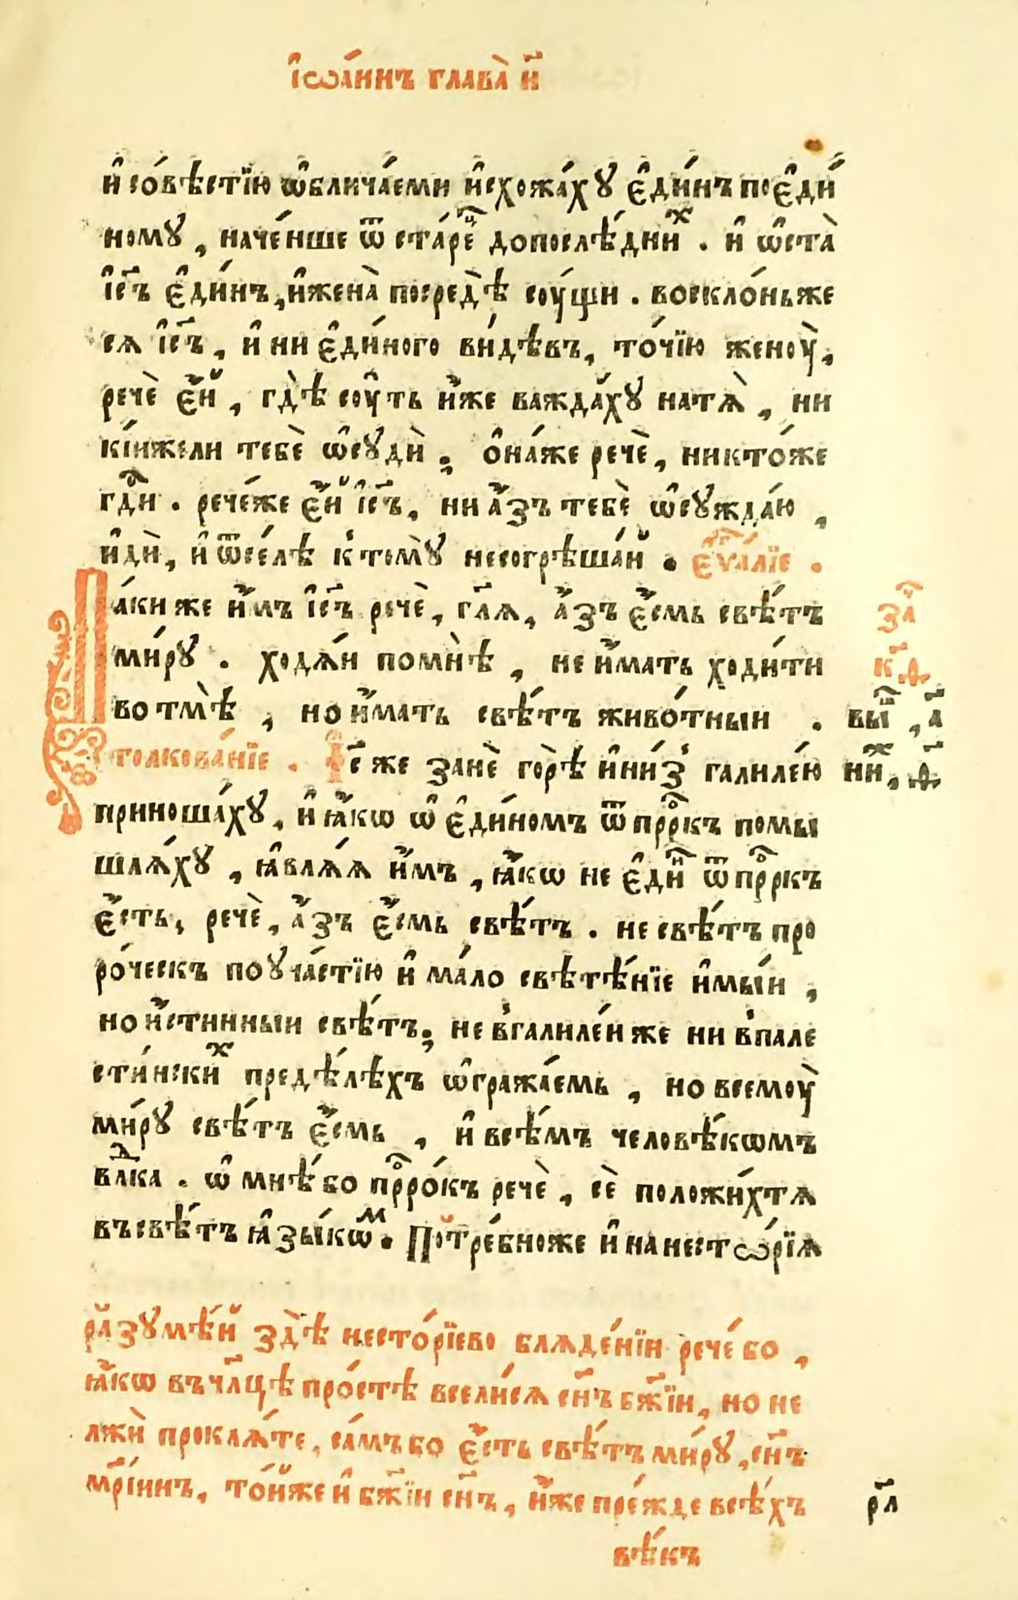 і҆ѡа́ннъ глава̀ и҃
и҆ со́вѣстїю ѡ҆блича́еми и҆схожа́хꙋ є҆ди́нъ поє҆ди́
номꙋ, наче́нше ѿ ста́рєцъ допослѣ́днихъ . и҆ ѡ҆ста̀
і҆с҃ъ є҆ди́нъ, и҆жена̀ посредѣ̀ сꙋ́щи . восклоньже
сѧ і҆с҃ъ, и҆ ни є҆ди́ного ви́дѣвъ, то́чїю женоу̀,
речѐ є҆́й, гдѣ̀ соу́ть и҆̀же важда́хꙋ натѧ̀, ни
кі́йжели тебѐ ѡ҆сꙋдѝ ; ѻ҆на́же речѐ, никто́же
гд҇и . рече́же є҆́й і҆с҃ъ, ни а҆́зъ тебѐ ѡ҆сꙋжда́ю ,
и҆дѝ, и҆ ѿсе́лѣ ктомꙋ̀ несогрѣша́й . є҆ѵⷢ҇а́лїе .
Паки же и҆̀мъ і҆с҃ъ речѐ, гл҃ѧ, а҆́зъ є҆́смь свѣ́тъ
за҆ч
мі́рꙋ . ходѧ́й помнѣ̀, не и҆́мать ходи́ти
к҃ѳ
во тмѣ̀ , но и҆́мать свѣ́тъ живо́тный .
толкова́нїе . І҆с҃ же занѐ го́рѣ и҆ни́зꙋ галиле́ю
приноша́хꙋ, и҆ ꙗ҆́кѡ ѡ҆ є҆ди́номъ ѿ прⷪ҇ркъ помы
шлѧ́хꙋ , ꙗ҆влѧ́ѧ и҆̀мъ , ꙗ҆́кѡ не є҆ди́нъ ѿ прⷪ҇ркъ
є҆́сть, речѐ, а҆́зъ є҆́смь свѣ́тъ . не свѣ́тъ про
ро́ческъ поꙋча́стїю и҆ ма́ло свѣтѣ́нїе и҆мы́й ,
но и҆́стинный свѣ́тъ; не вгалиле́и же ни впале
сти́нскихъ предѣ́лѣхъ ѡ҆гражда́емь , но всемоу̀
ми́рꙋ свѣ́тъ є҆́смь , и҆ всѣ́мъ человѣ́кѡмъ
влⷣка . ѡ҆ мнѣ́ бо прⷪ҇ро́къ речѐ, сѐ положи́хтѧ
въсвѣ́тъ ꙗ҆зы́кѡмъ. Потре́бноже и҆ на несто́рїѧ
разꙋмѣ́й здѣ̀ несто́рїево блѧде́нїи рече́ бо ,
ꙗ҆́кѡ въчл҃цѣ про́стѣ всели́сѧ сн҃ъ бж҃їи, но не
лжѝ проклѧ́те, са́мъ бо є҆́сть свѣ́тъ ми́рꙋ, сн҃ъ
мр҃і́инъ, то́йже и҆ бж҃їи сн҃ъ, и҆́же пре́жде всѣ́хъ
вѣ́къ
рл҃